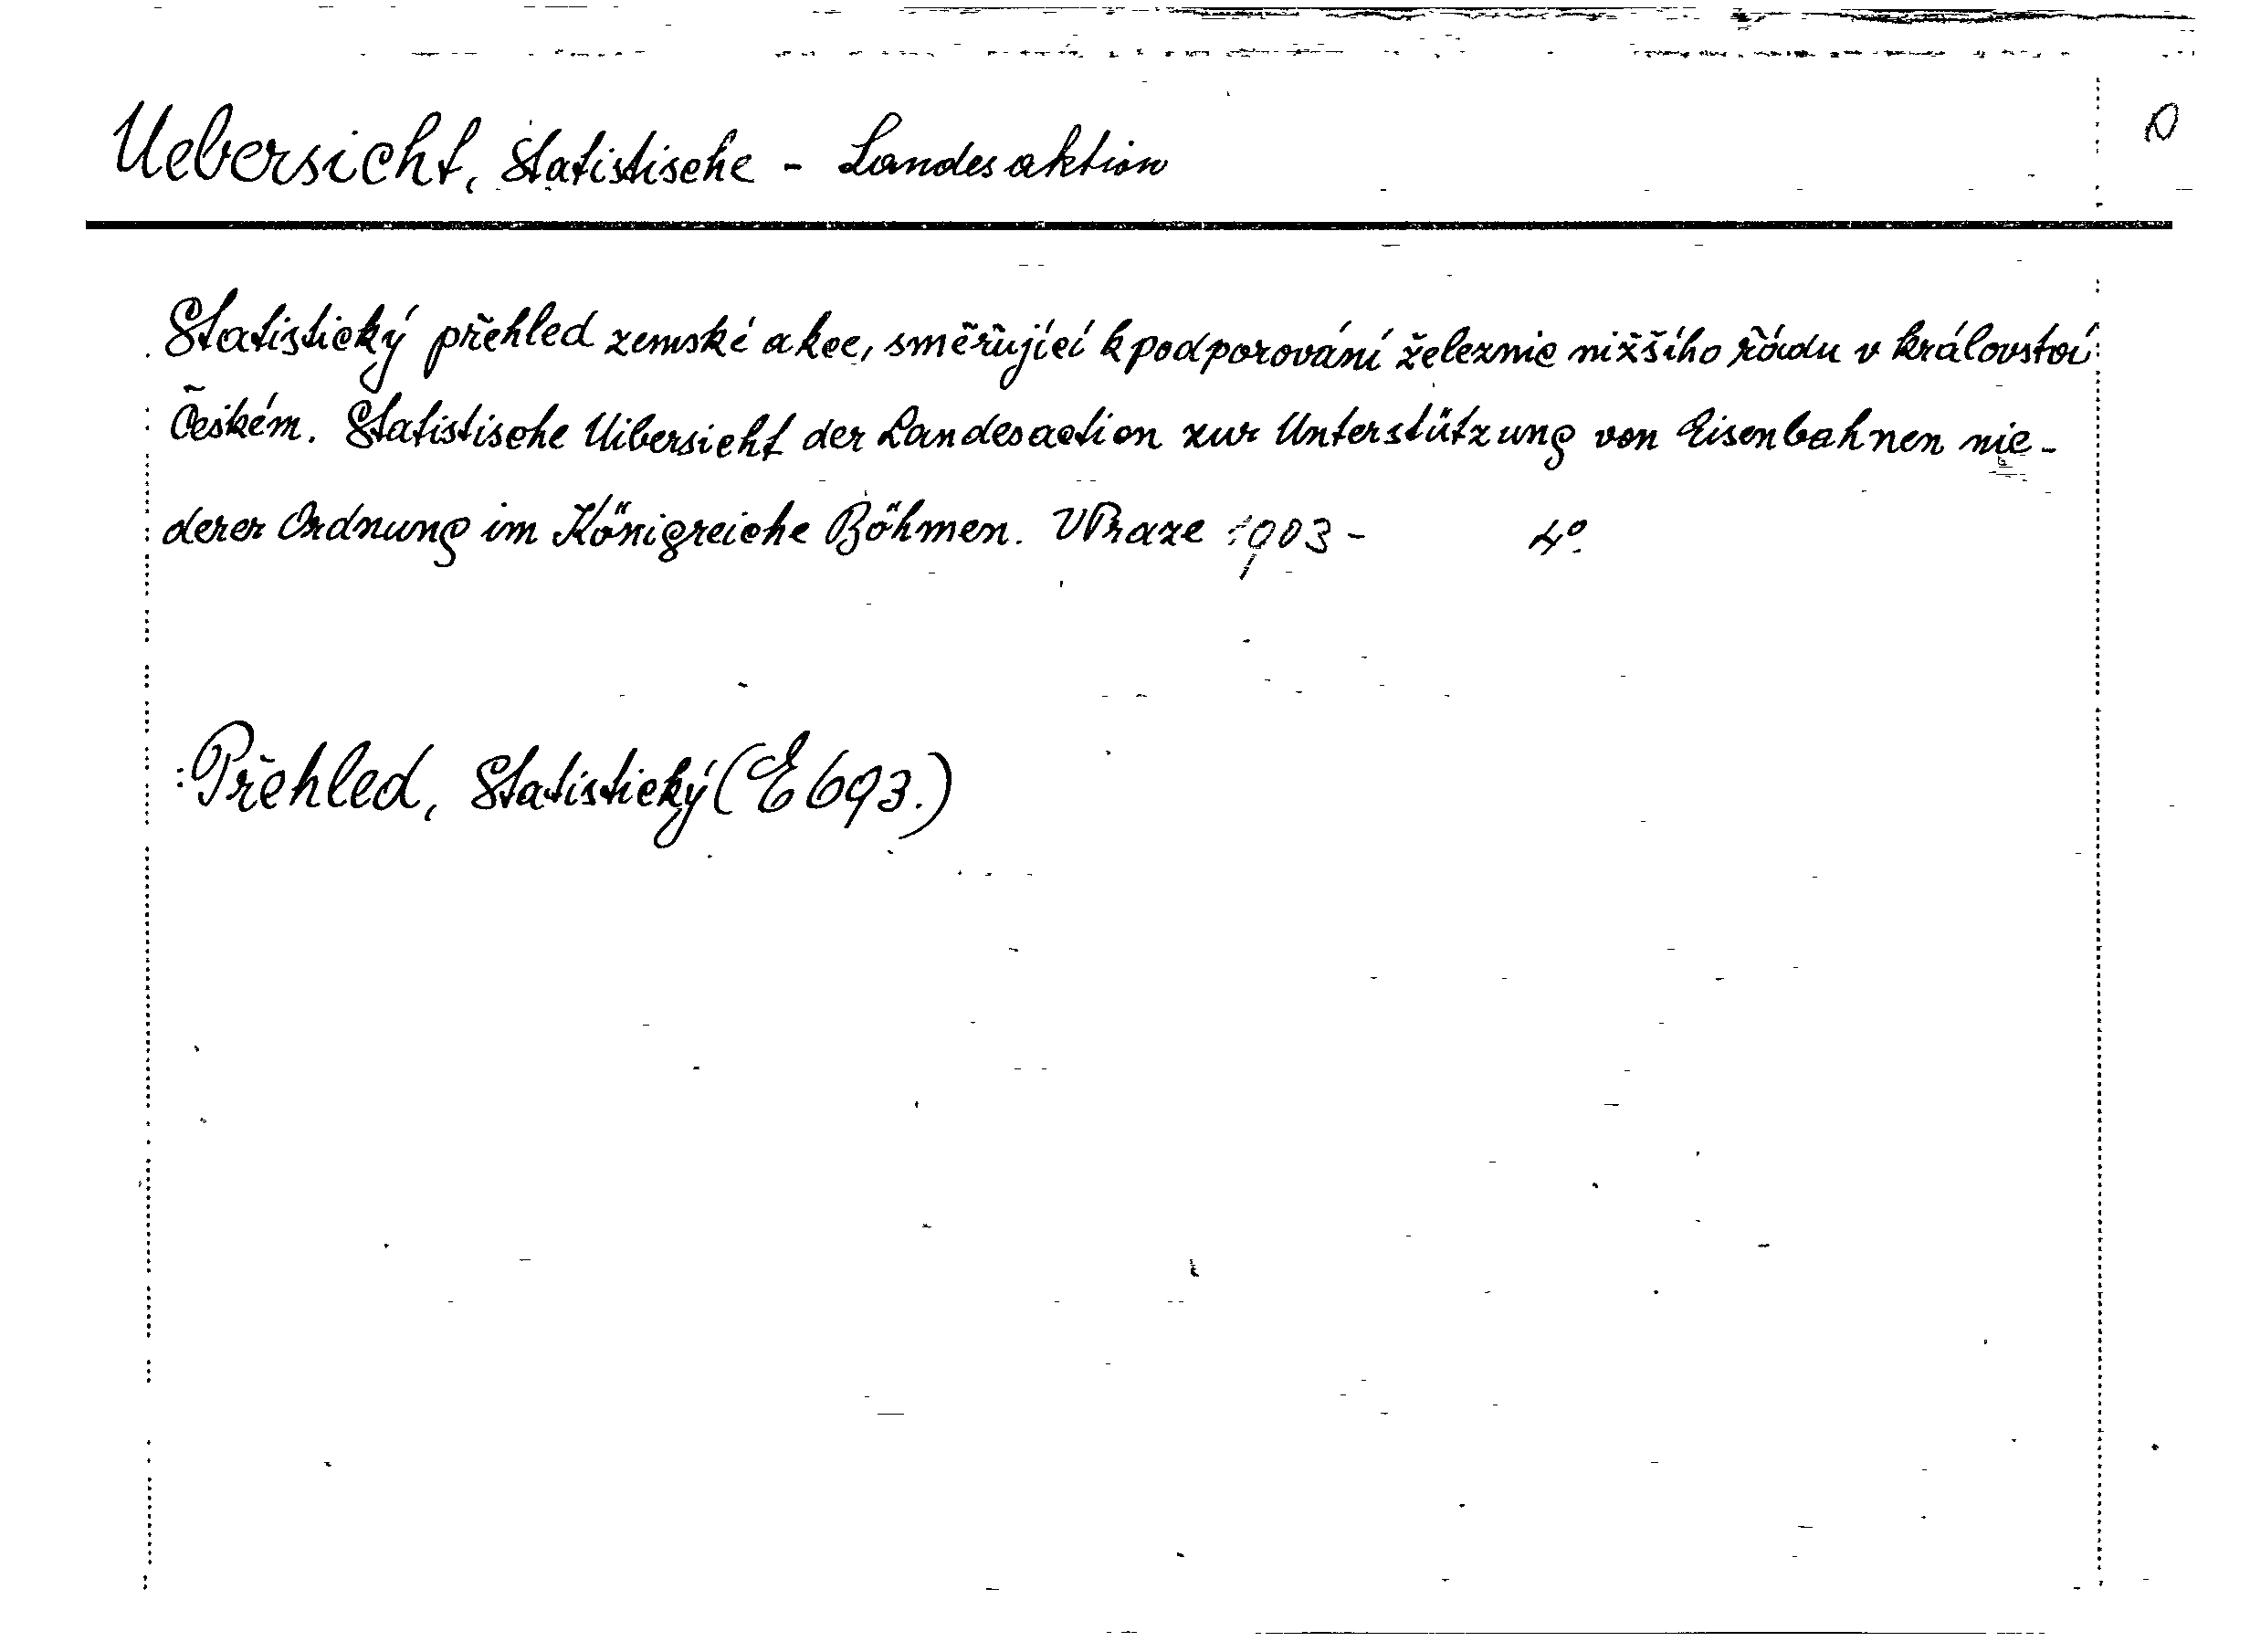 Uebersicht, Statistische - Landesaktion D
Statistický přehled zemské akce, směřující k podporování železnic nižšího řádu v království
Českém. Statistische Uibersicht der Landesaction zur Unterstützung von Eisenbahnen nie-
derer Ordnung im Königreiche Böhmen. V Praze 1903 - 4°.
Přehled, Statistický (E 693.)